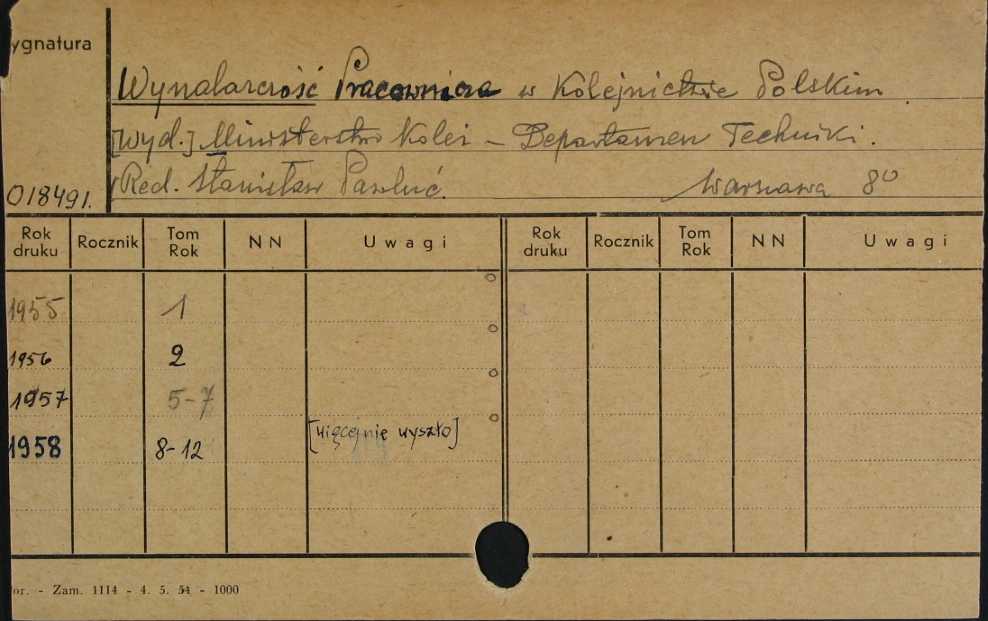 ygnatura
Wynalazczość Pracownicza w Kolejnictwie Polskim
[wyd.] Ministerstwo Kolei – Departamen Techniki.
Red. Stanisław Pawluć. Warszawa 8º
018491.
Rok druku Rocznik Tom Rok NN Uwagi Rok druku Rocznik Tom Rok NN Uwagi
1955 1
1956 2
1957 5-7
1958 8-12 [więcej nie wyszło]
or. - Zam. 1114 - 4. 5. 54 - 1000